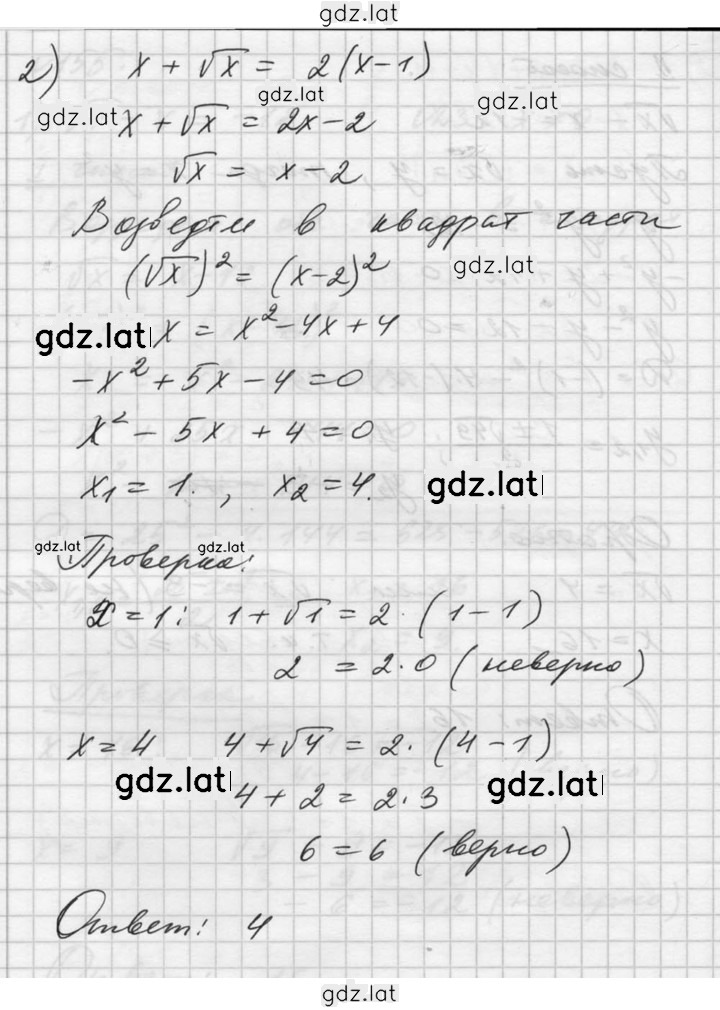 gdz.lat
2) x + √x = 2(x-1)
gdz.lat
gdz.lat
gdz.lat
x + √x = 2x-2
√x = x-2
Возведём в квадрат части
(√x)² = (x-2)²
gdz.lat
gdz.lat
x = x²-4x+4
-x²+5x-4=0
x²-5x+4=0
x₁=1., x₂=4.
gdz.lat
gdz.lat
gdz.lat
Проверка:
x=1: 1+√1=2·(1-1)
2 = 2·0 (неверно)
x=4 4+√4=2·(4-1)
gdz.lat
gdz.lat
4+2=2·3
6=6 (верно)
Ответ: 4
gdz.lat